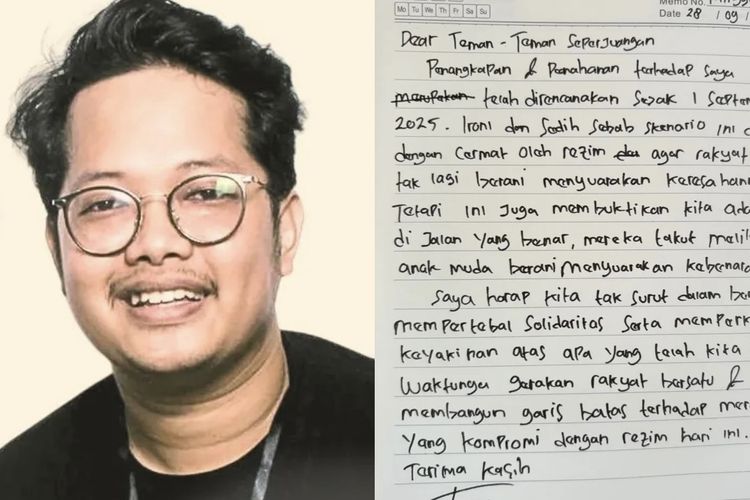 Mo Tu We Th Fr Sa Su
Memo No.
Date 28 / 09 /
Dear Teman - Teman Seperjuangan
Penangkapan & Penahanan terhadap saya
merupakan telah direncanakan sejak 1 Septem
2025. Ironi dan Sedih sebab skenario ini d
dengan cermat oleh rezim agar rakyat
tak lagi berani menyuarakan keresahann
Tetapi ini juga membuktikan kita ada
di Jalan yang benar, mereka takut melih
anak muda berani menyuarakan kebenara
Saya harap kita tak surut dalam ber
mempertebal Solidaritas Serta memperk
keyakinan atas apa yang telah kita
Waktunya gerakan rakyat bersatu &
membangun garis batas terhadap mer
yang kompromi dengan rezim hari ini.
Terima kasih